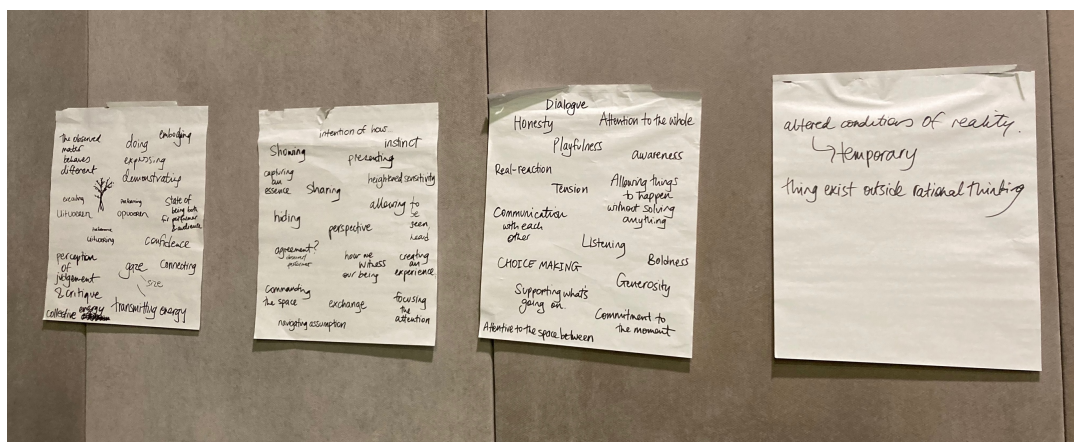 The observed
mater
behaves
different
doing
embodying
exposing
demonstrating
executing
uitvoeren
opvoeren
State of
being both
performer
& audience
confidence
perception
of
judgement
& critique
gaze
size
connecting
collective energy
transmitting energy
intention of how...
instinct
Showing
presenting
capturing
an
essence
heightened sensitivity
Sharing
allowing to
be
seen,
heard
hiding
perspective
agreement?
around
how we
witness
our being
creating
an
experience
Commanding
the space
exchange
focusing
the
attention
navigating assumption
Dialogue
Honesty
Attention to the whole
Playfulness
awareness
Real-reaction
Tension
Allowing things
to happen
without solving
anything
Communication
with each
other
Listening
Boldness
CHOICE MAKING
Generosity
Supporting what's
going on.
Commitment to
the moment
Attentive to the space between
altered conditions of reality.
temporary
thing exist outside rational thinking